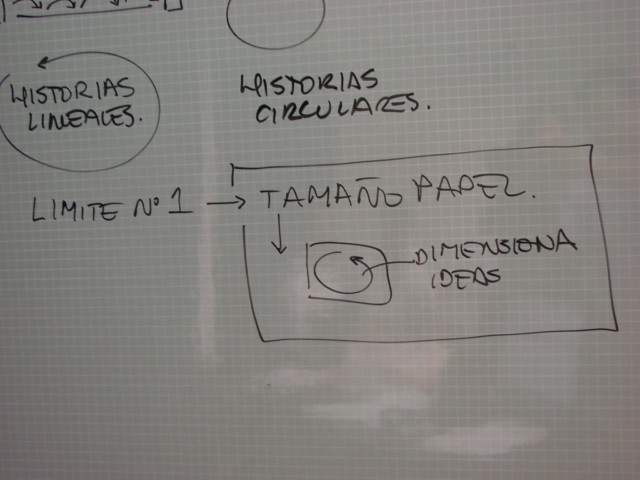 HISTORIAS
LINEALES.
HISTORIAS
CIRCULARES.
LIMITE Nº 1 → TAMAÑO PAPEL.
DIMENSIONA
IDEAS